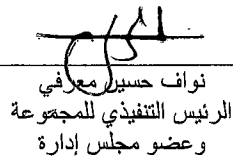 نواف حسين معرفي
الرئيس التنفيذي للمجموعة
وعضو مجلس إدارة